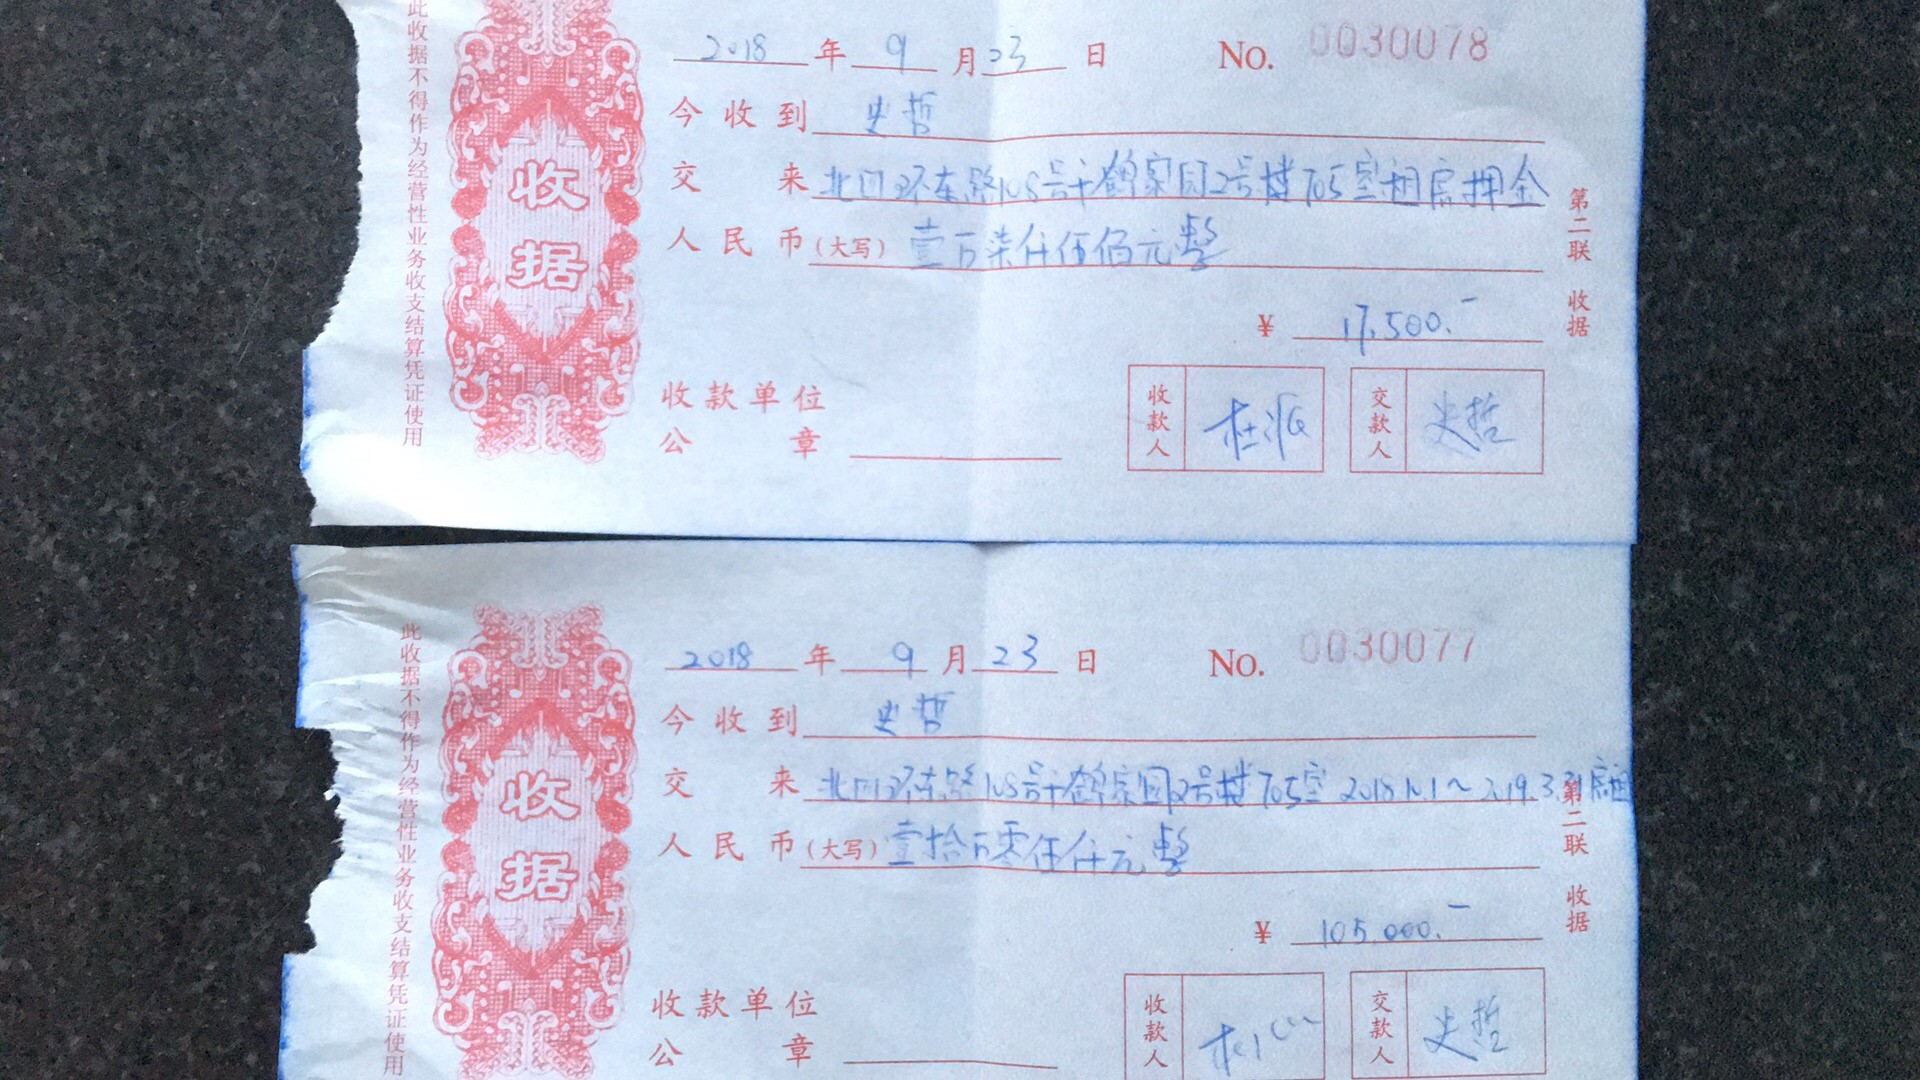 此收据不得作为经营性业务收支结算凭证使用
收据
2018年9月23日 No. 0030078
今收到 史哲
交来 北四环东路108号千鹤家园2号楼705室租房押金
人民币(大写) 壹万柒仟伍佰元整
¥ 17,500.-
第二联 收据
收款单位
公章
收款人
交款人 史哲
此收据不得作为经营性业务收支结算凭证使用
收据
2018年9月23日 No. 0030077
今收到 史哲
交来 北四环东路108号千鹤家园2号楼705室 2018.10.1~2019.3.31房租
人民币(大写) 壹拾万零伍仟元整
¥ 105.000.-
第二联 收据
收款单位
公章
收款人
交款人 史哲